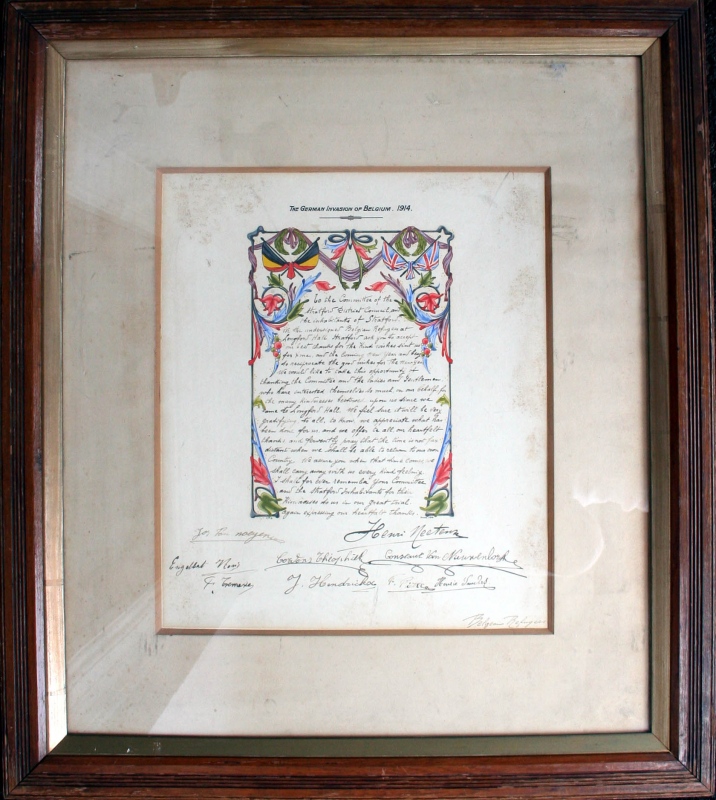 THE GERMAN INVASION OF BELGIUM. 1914.
To the Committee of the
Stratford District Council, and
the inhabitants of Stratford
We the undersigned Belgian Refugees at
Longford Hall Stratford ask you to accept
our best thanks for the kind wishes sent us
for Xmas, and the coming new year and beg
to reciprocate the good wishes for the
We would like to take this opportunity of
thanking the Committee and the Ladies and Gentlemen
who have interested themselves so much on our behalf for
the many kindnesses bestowed upon us since we
came to Longford Hall. We feel sure it will be very
gratifying to all, to know we appreciate what has
been done for us and we offer to all our heartfelt
thanks and fervently pray that the time is not far
distant when we shall be able to return to our own
Country. We assure you when that time comes we
shall carry away with us every kind feeling
& shall for ever remember your Committee
and the Stratford Inhabitants for their
Kindnesses to us in our great trial
again expressing our heartfelt thanks.
Henri
Engelbert
Théophile Constant Van
F. J. Hendrickx
Belgian Refugees